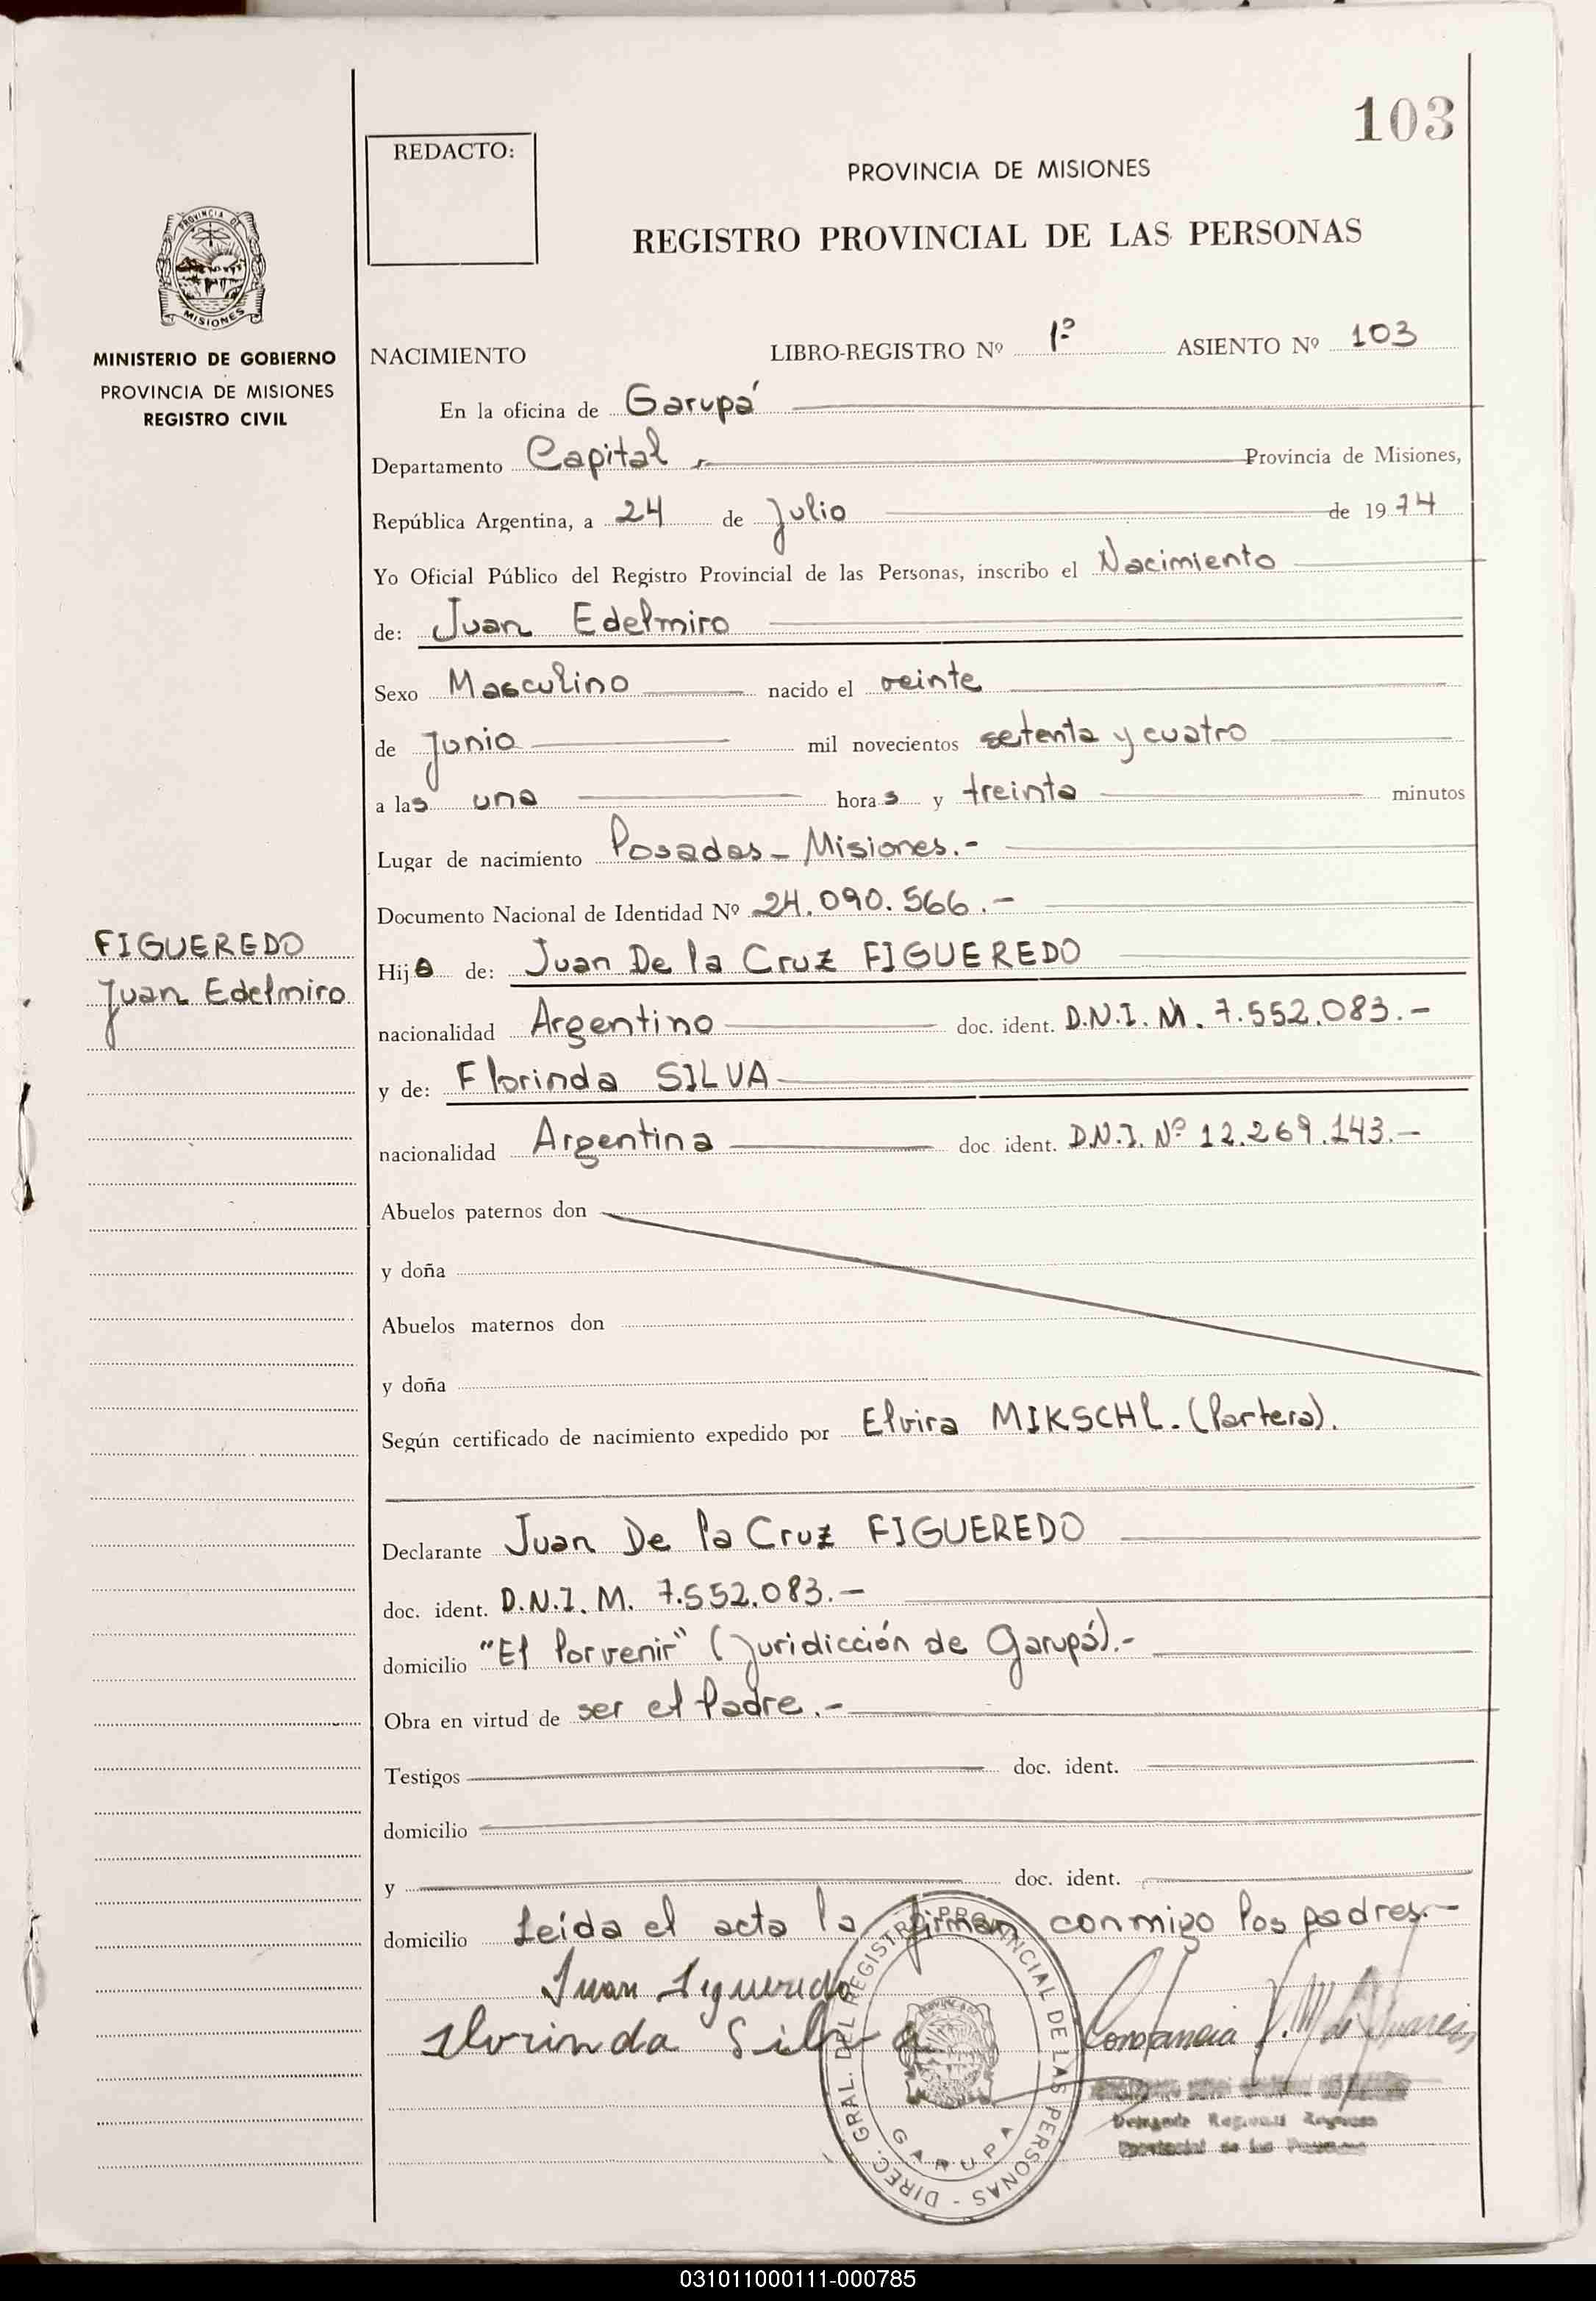 103
REDACTO:
PROVINCIA DE MISIONES
REGISTRO PROVINCIAL DE LAS PERSONAS
PROVINCIA DE
MISIONES
MINISTERIO DE GOBIERNO
PROVINCIA DE MISIONES
REGISTRO CIVIL
NACIMIENTO LIBRO-REGISTRO Nº 1º ASIENTO Nº 103
En la oficina de Garupá
Departamento Capital, Provincia de Misiones,
República Argentina, a 24 de Julio de 1974
Yo Oficial Público del Registro Provincial de las Personas, inscribo el Nacimiento
de: Juan Edelmiro
Sexo Masculino nacido el veinte
de Junio mil novecientos setenta y cuatro
a las una horas y treinta minutos
Lugar de nacimiento Posadas - Misiones.-
Documento Nacional de Identidad Nº 24.090.566.-
FIGUEREDO
Juan Edelmiro
Hijo de: Juan De la Cruz FIGUEREDO
nacionalidad Argentino doc. ident. D.N.I. M. 7.552.083.-
y de: Florinda SILVA
nacionalidad Argentina doc. ident. D.N.I. Nº 12.269.143.-
Abuelos paternos don
y doña
Abuelos maternos don
y doña
Según certificado de nacimiento expedido por Elvira MIKSCHL. (Partera).
Declarante Juan De la Cruz FIGUEREDO
doc. ident. D.N.I. M. 7.552.083.-
domicilio "El Porvenir" (Juridicción de Garupá).-
Obra en virtud de ser el Padre.-
Testigos doc. ident.
domicilio
y doc. ident.
domicilio Leída el acta la firman conmigo los padres.-
Juan Figueredo
Florinda Silva
Constancia
DIREC. GRAL. DEL REGISTRO PROVINCIAL DE LAS PERSONAS -
GARUPA
Delegada Regional Registro
Provincial de las Personas
031011000111-000785